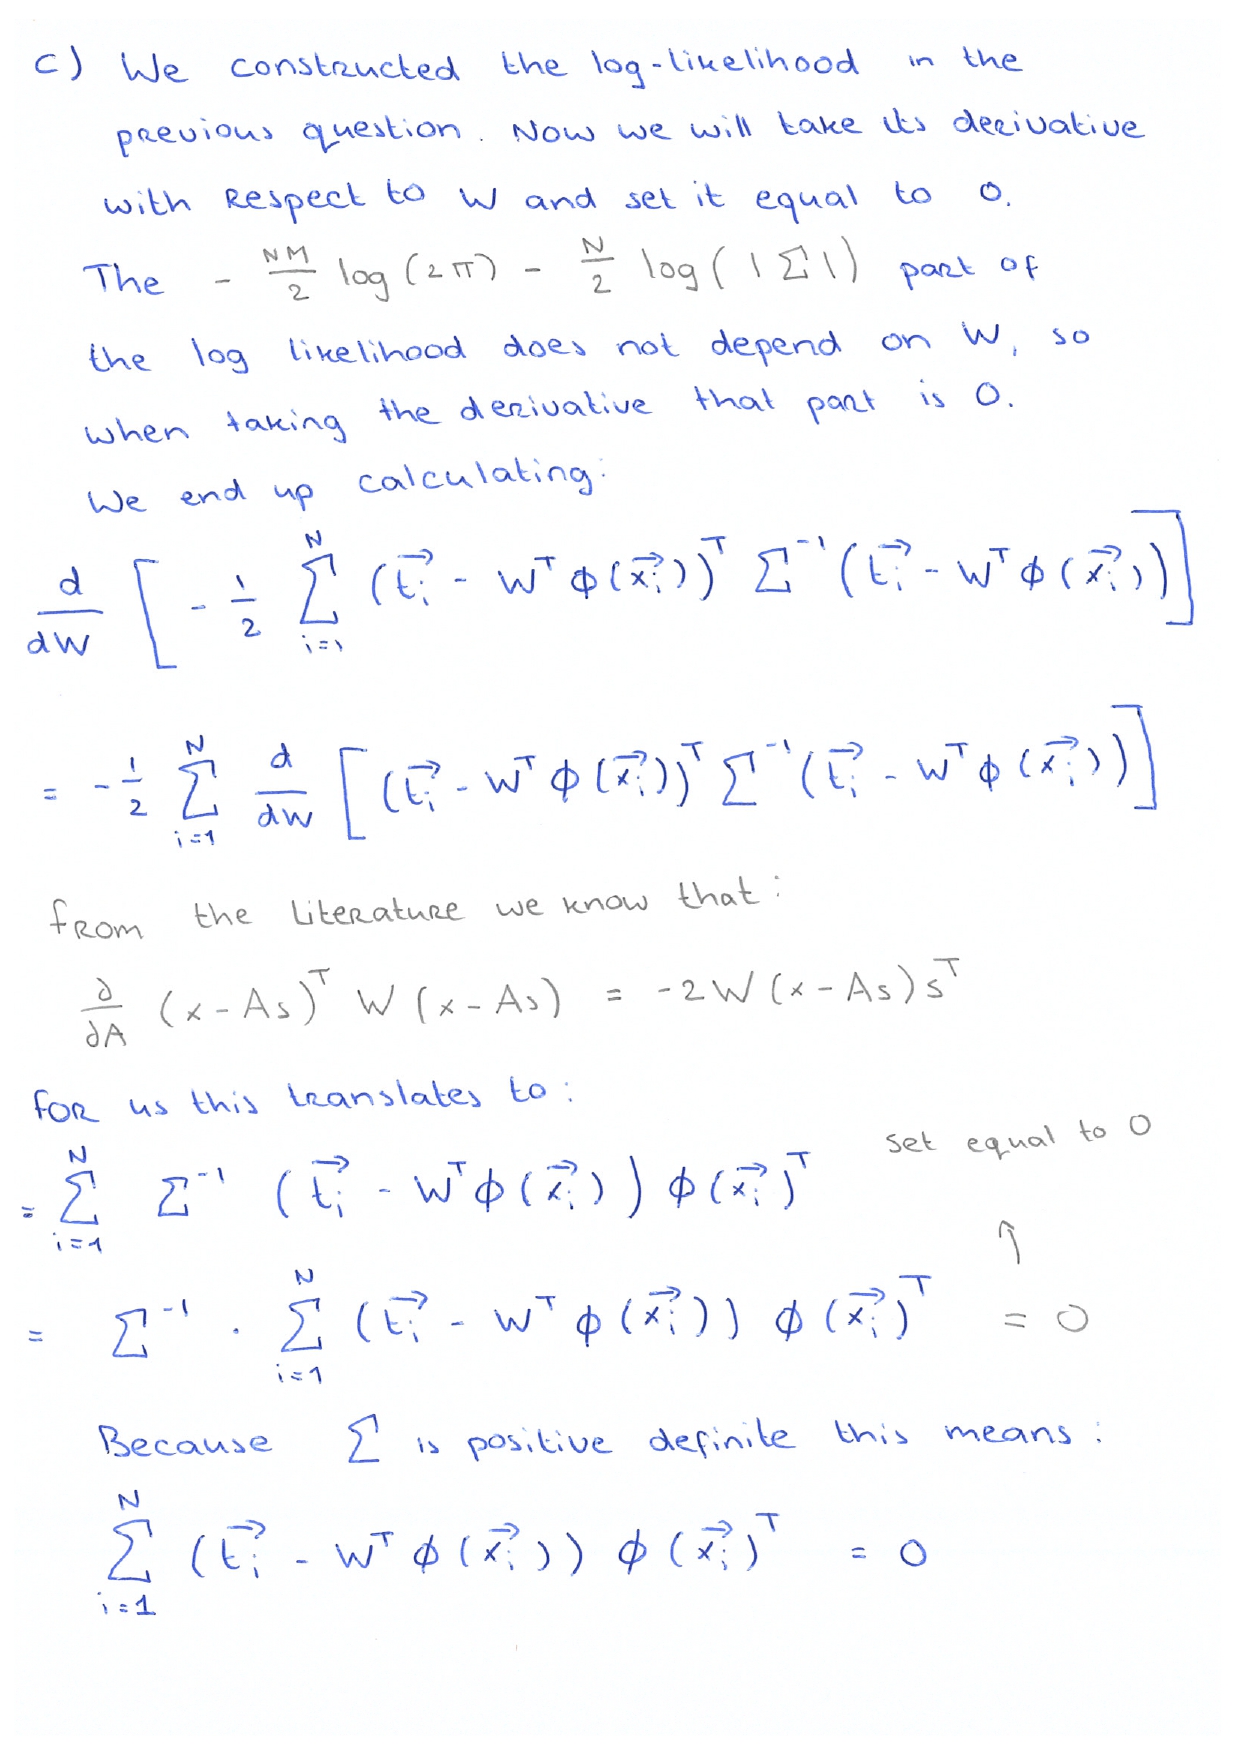 c) We constructed the log-likelihood in the
previous question. Now we will take its derivative
with respect to W and set it equal to 0.
The - NM/2 log(2π) - N/2 log(|Σ|) part of
the log likelihood does not depend on W, so
when taking the derivative that part is 0.
We end up calculating:
d/dW [ - 1/2 Σ_{i=1}^{N} (t⃗_i - W^T ϕ(x⃗_i))^T Σ^{-1} (t⃗_i - W^T ϕ(x⃗_i)) ]
= - 1/2 Σ_{i=1}^{N} d/dW [ (t⃗_i - W^T ϕ(x⃗_i))^T Σ^{-1} (t⃗_i - W^T ϕ(x⃗_i)) ]
from the literature we know that:
∂/∂A (x - As)^T W (x - As) = -2W (x - As) s^T
for us this translates to:
set equal to 0
= Σ_{i=1}^{N} Σ^{-1} (t⃗_i - W^T ϕ(x⃗_i)) ϕ(x⃗_i)^T
↑
= Σ^{-1} · Σ_{i=1}^{N} (t⃗_i - W^T ϕ(x⃗_i)) ϕ(x⃗_i)^T = 0
Because Σ is positive definite this means:
Σ_{i=1}^{N} (t⃗_i - W^T ϕ(x⃗_i)) ϕ(x⃗_i)^T = 0